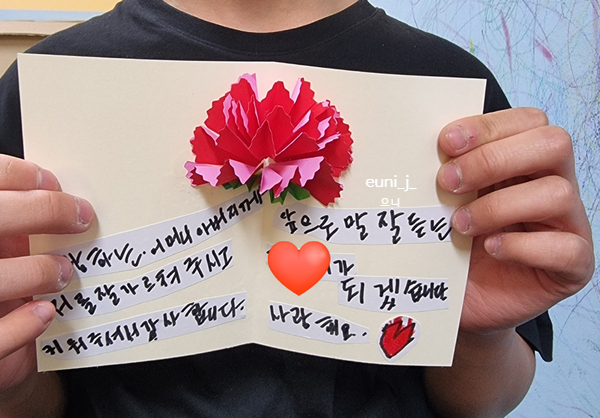 하는 어머니 아버지께
를 잘 가르쳐 주시고
키워주셔서 감사합니다.
euni_j_
으니
앞으로 말 잘 듣는
가
되겠습니다
사랑해요.